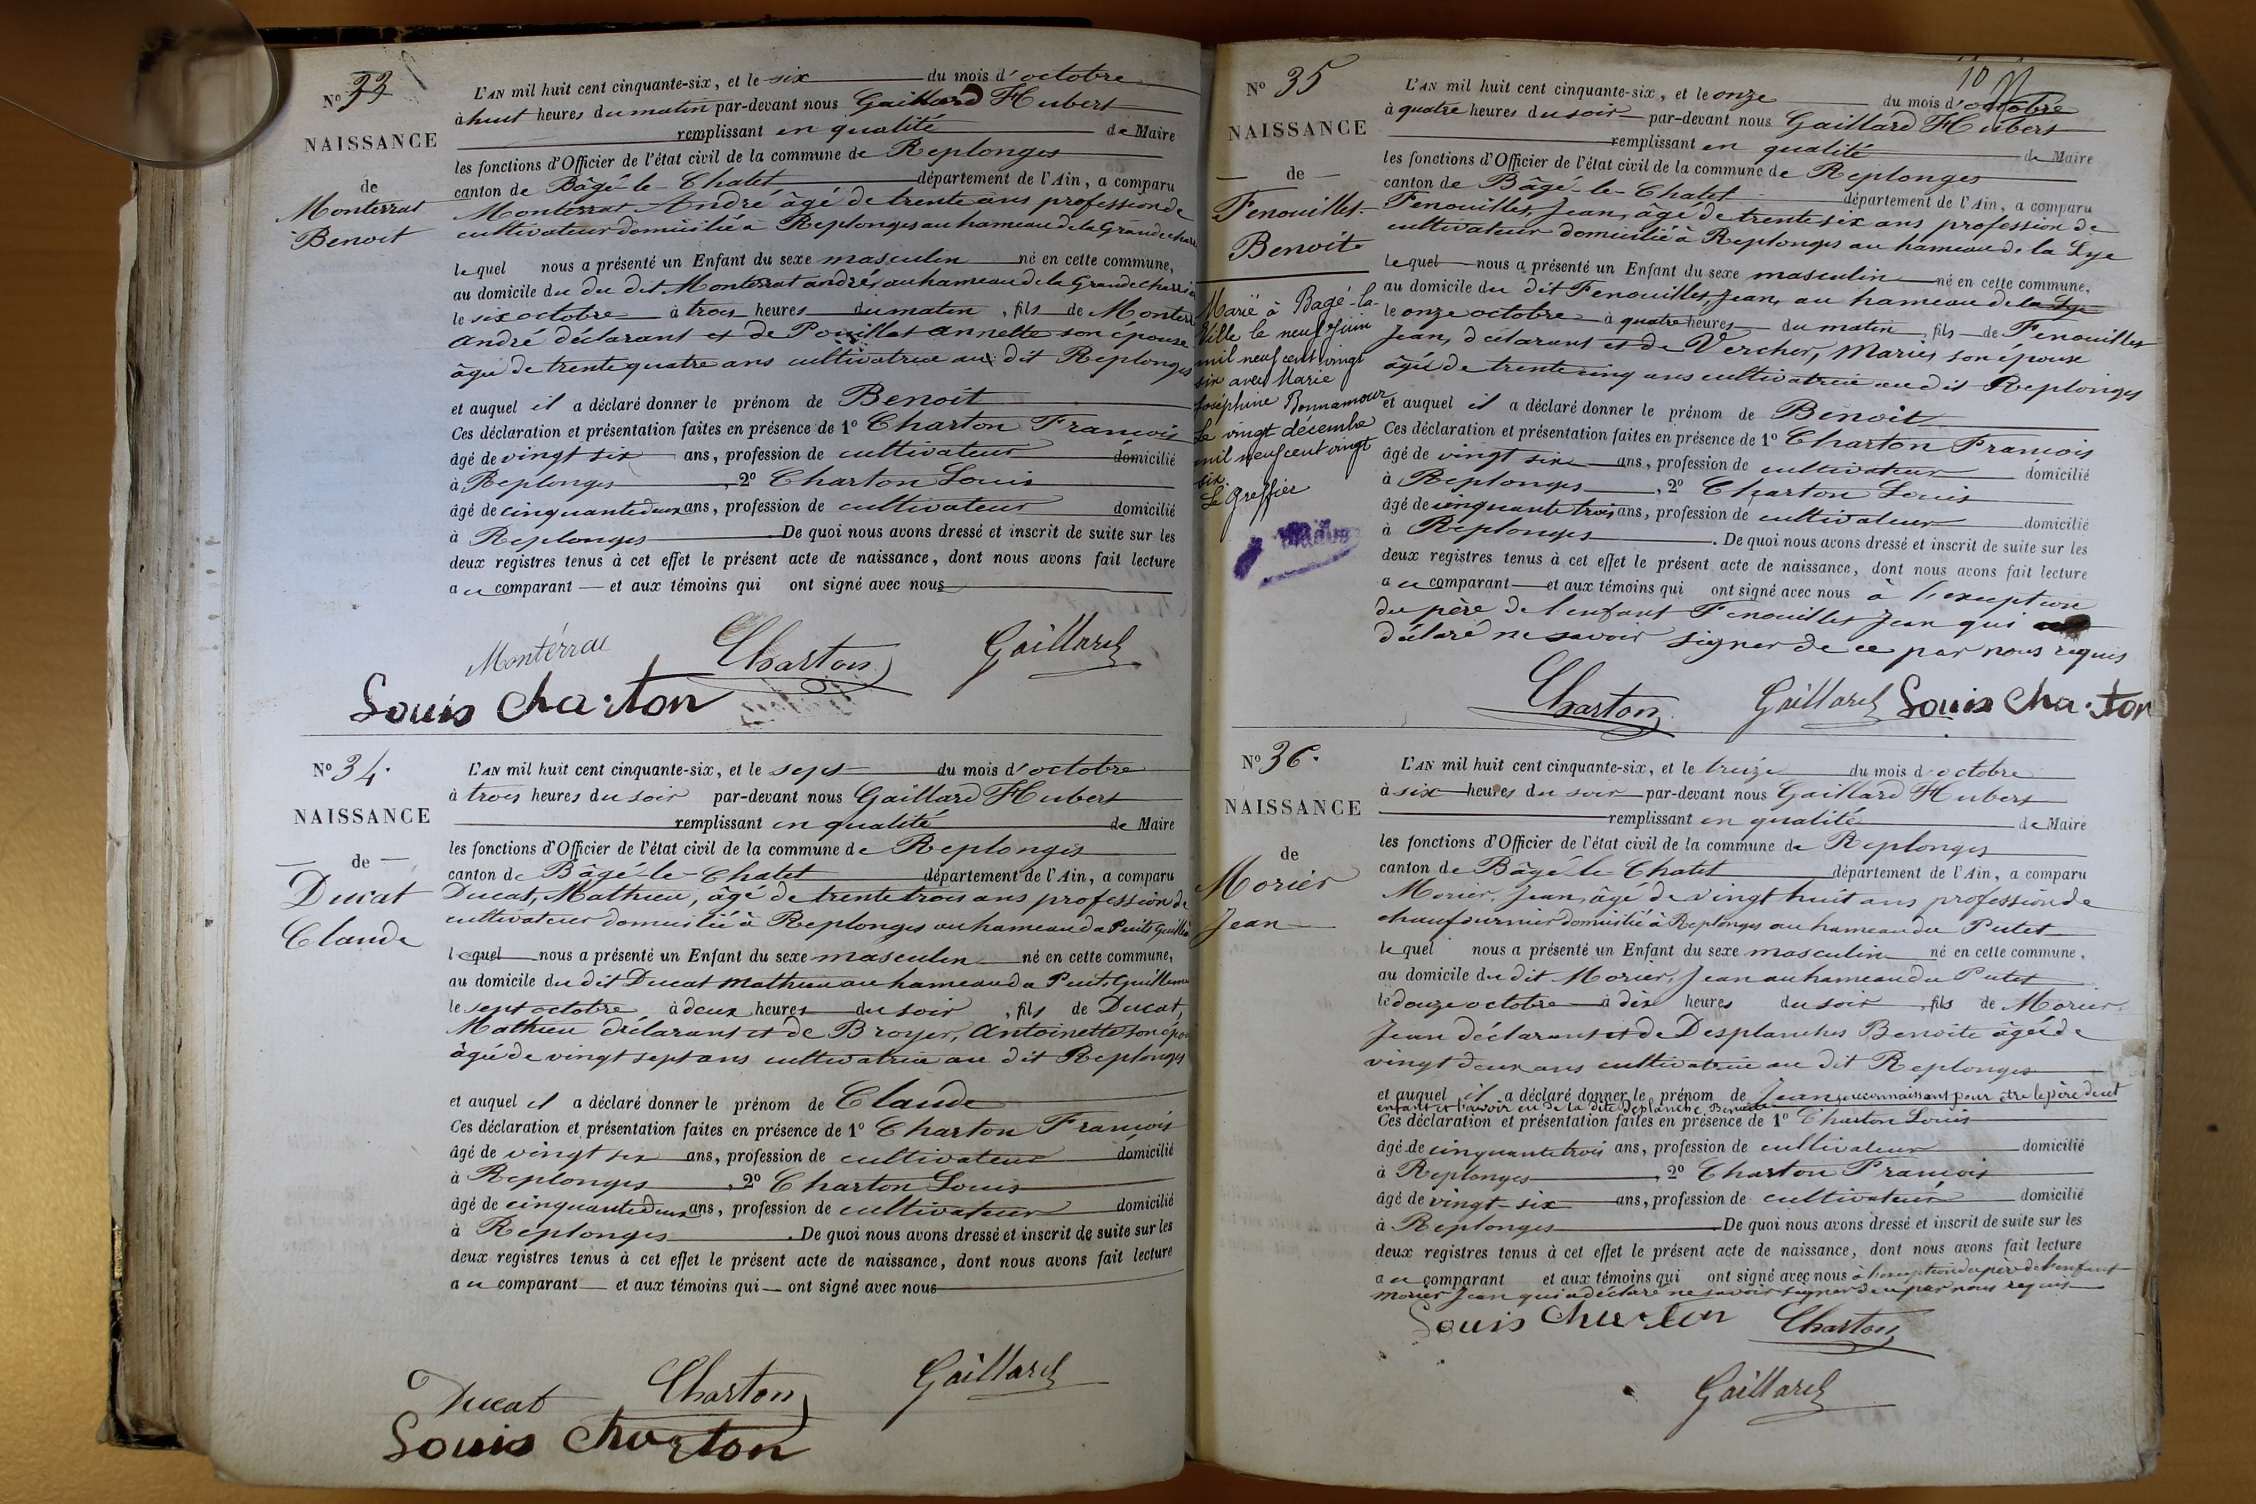 Nº 33
NAISSANCE
de
Monterrat
Benoit
L'AN mil huit cent cinquante-six, et le six du mois d'octobre
à huit heures du matin par-devant nous Gaillard Hubert
remplissant en qualité de Maire
les fonctions d'Officier de l'état civil de la commune de Replonges
canton de Bâgé-le-Chatel département de l'Ain, a comparu
Monterrat André âgé de trente ans profession de
cultivateur domicilié à Replonges au hameau de la Grande
lequel nous a présenté un Enfant du sexe masculin né en cette commune,
au domicile du dit Monterrat andré, au hameau de la Grande
le six octobre à trois heures du matin, fils de
André déclarant et de Pouillat annette son épouse
âgée de trente quatre ans cultivatrice au dit Replonges
et auquel il a déclaré donner le prénom de Benoit
Ces déclaration et présentation faites en présence de 1º Charton François
âgé de vingt six ans, profession de cultivateur domicilié
à Replonges, 2º Charton Louis
âgé de cinquante deux ans, profession de cultivateur domicilié
à Replonges. De quoi nous avons dressé et inscrit de suite sur les
deux registres tenus à cet effet le présent acte de naissance, dont nous avons fait lecture
au comparant et aux témoins qui ont signé avec nous
Monterrat Charton Gaillard
Louis Charton
Nº 34.
NAISSANCE
de
Ducat
Claude
L'AN mil huit cent cinquante-six, et le sept du mois d'octobre
à trois heures du soir par-devant nous Gaillard Hubert
remplissant en qualité de Maire
les fonctions d'Officier de l'état civil de la commune de Replonges
canton de Bâgé-le-Chatel département de l'Ain, a comparu
Ducat, Mathieu, âgé de trente trois ans profession de
cultivateur domicilié à Replonges au hameau de Puits
lequel nous a présenté un Enfant du sexe masculin né en cette commune,
au domicile du dit Ducat Mathieu au hameau de
le sept octobre à deux heures du soir, fils de Ducat,
Mathieu déclarant et de Broyer, Antoinette son
âgée de vingt sept ans cultivatrice au dit Replonges
et auquel il a déclaré donner le prénom de Claude
Ces déclaration et présentation faites en présence de 1º Charton François
âgé de vingt six ans, profession de cultivateur domicilié
à Replonges, 2º Charton Louis
âgé de cinquante deux ans, profession de cultivateur domicilié
à Replonges. De quoi nous avons dressé et inscrit de suite sur les
deux registres tenus à cet effet le présent acte de naissance, dont nous avons fait lecture
au comparant et aux témoins qui ont signé avec nous
Ducat Charton Gaillard
Louis Charton
10
Nº 35
NAISSANCE
de
Fenouillet
Benoit
Marié à Bagé-la-
Ville le neuf Juin
mil neuf cent vingt
six avec Marie
Joséphine Bonnamour
Le vingt décembre
mil neuf cent vingt
six.
Le Greffier
L'AN mil huit cent cinquante-six, et le onze du mois d'octobre
à quatre heures du soir par-devant nous Gaillard Hubert
remplissant en qualité de Maire
les fonctions d'Officier de l'état civil de la commune de Replonges
canton de Bâgé-le-Chatel département de l'Ain, a comparu
Fenouillet, Jean, âgé de trente six ans profession de
cultivateur domicilié à Replonges au hameau de la Lye
lequel nous a présenté un Enfant du sexe masculin né en cette commune,
au domicile du dit Fenouillet, Jean, au hameau de la Lye
le onze octobre à quatre heures du matin fils de Fenouillet
Jean, déclarant et de Vercher, Marie, son épouse
âgée de trente cinq ans cultivatrice au dit Replonges
et auquel il a déclaré donner le prénom de Benoit
Ces déclaration et présentation faites en présence de 1º Charton François
âgé de vingt six ans, profession de cultivateur domicilié
à Replonges, 2º Charton Louis
âgé de cinquante trois ans, profession de cultivateur domicilié
à Replonges. De quoi nous avons dressé et inscrit de suite sur les
deux registres tenus à cet effet le présent acte de naissance, dont nous avons fait lecture
au comparant et aux témoins qui ont signé avec nous à l'exception
du père de l'enfant Fenouillet Jean qui
déclaré ne savoir signer de ce par nous requis
Charton Gaillard Louis Charton
Nº 36.
NAISSANCE
de
Morier
Jean
L'AN mil huit cent cinquante-six, et le treize du mois d'octobre
à six heures du soir par-devant nous Gaillard Hubert
remplissant en qualité de Maire
les fonctions d'Officier de l'état civil de la commune de Replonges
canton de Bâgé-le-Chatel département de l'Ain, a comparu
Morier, Jean, âgé de vingt huit ans profession de
chaufournier domicilié à Replonges au hameau du Putet
lequel nous a présenté un Enfant du sexe masculin né en cette commune,
au domicile du dit Morier, Jean au hameau du Putet
le douze octobre à dix heures du soir, fils de Morier
Jean déclarant et de Desplanches Benoite âgée de
vingt deux ans cultivatrice au dit Replonges
et auquel il a déclaré donner le prénom de Jean reconnaissant pour être le père du dit
enfant et l'avoir eu de la dite Desplanche Benoite
Ces déclaration et présentation faites en présence de 1º Charton Louis
âgé de cinquante trois ans, profession de cultivateur domicilié
à Replonges, 2º Charton François
âgé de vingt-six ans, profession de cultivateur domicilié
à Replonges. De quoi nous avons dressé et inscrit de suite sur les
deux registres tenus à cet effet le présent acte de naissance, dont nous avons fait lecture
au comparant et aux témoins qui ont signé avec nous à l'exception du père de l'enfant
Morier Jean qui a déclaré ne savoir signer de ce par nous requis
Louis Charton Charton
Gaillard